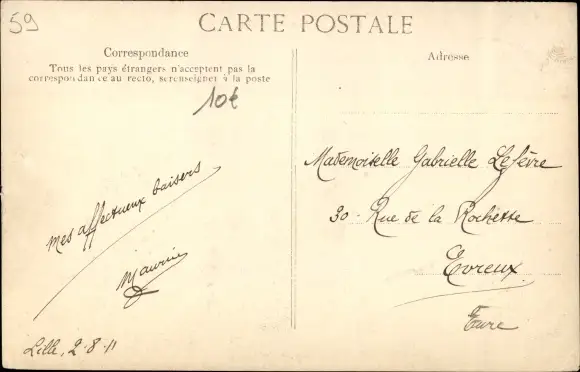 59
CARTE POSTALE
Correspondance
Tous les pays étrangers n'acceptent pas la
correspondance au recto, se renseigner à la poste
10€
mes affectueux baisers
Maurice
Lille, 2-8-11
Adresse
Mademoiselle Gabrielle Lefèvre
30 - Rue de la Rochette
Evreux
Eure